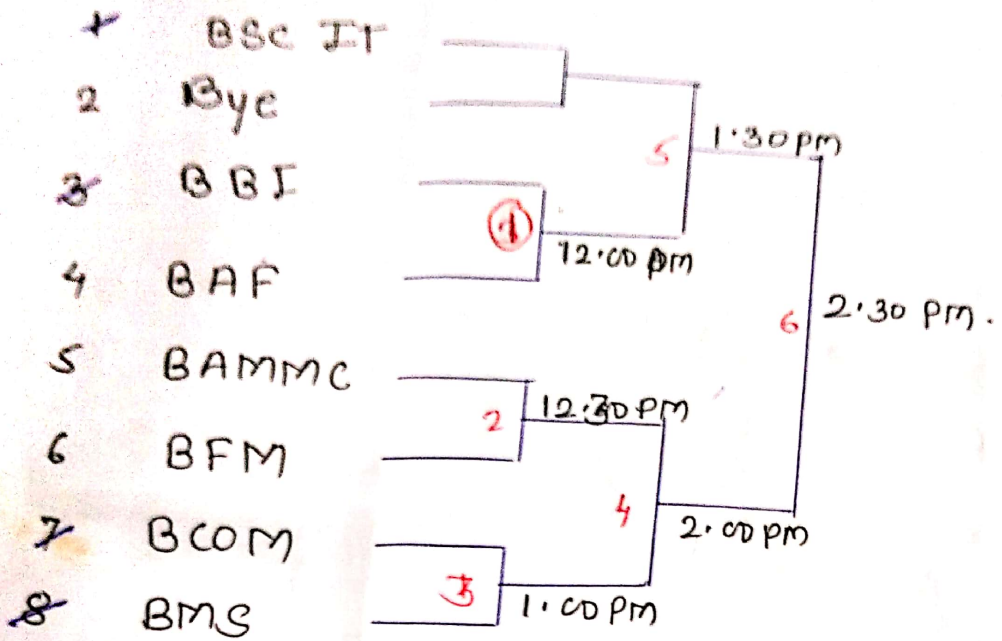 1 BSC IT
2 Bye
3 BBI
4 BAF
5 BAMMC
6 BFM
7 BCOM
8 BMS
5 1.30 pm
1 12.00 pm
6 2.30 pm.
2 12.30 PM
4 2.00 pm
3 1.00 PM